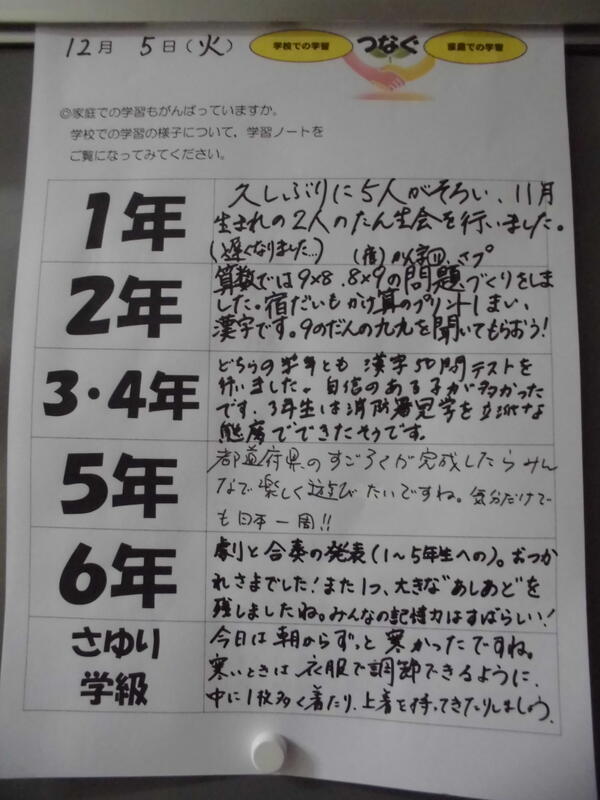 12月 5日(火)
学校での学習 つなぐ 家庭での学習
◎家庭での学習もがんばっていますか。
学校での学習の様子について，学習ノートを
ご覧になってみてください。
1年
久しぶりに5人がそろい、11月
生まれの2人のたん生会を行いました。
(遅くなりました…) (宿)
2年
算数では9×8、8×9の問題づくりをしま
した。宿だいもかけ算のプリント1まい、
漢字です。9のだんの九九を聞いてもらおう!
3・4年
どちらの学年とも漢字50問テストを
行いました。自信のある子が多かった
です。3年生は消防署見学を立派な
態度でできたそうです。
5年
都道府県のすごろくが完成したらみん
なで楽しく遊びたいですね。気分だけで
も日本一周!!
6年
劇と合奏の発表(1～5年生への)。おつか
れさまでした!また1つ、大きな"あしあと"を
残しましたね。みんなの記憶力はすばらしい!
さゆり
学級
今日は朝からずっと寒かったですね。
寒いときは衣服で調節できるように、
中に1枚多く着たり、上着を持ってきたりしましょう。